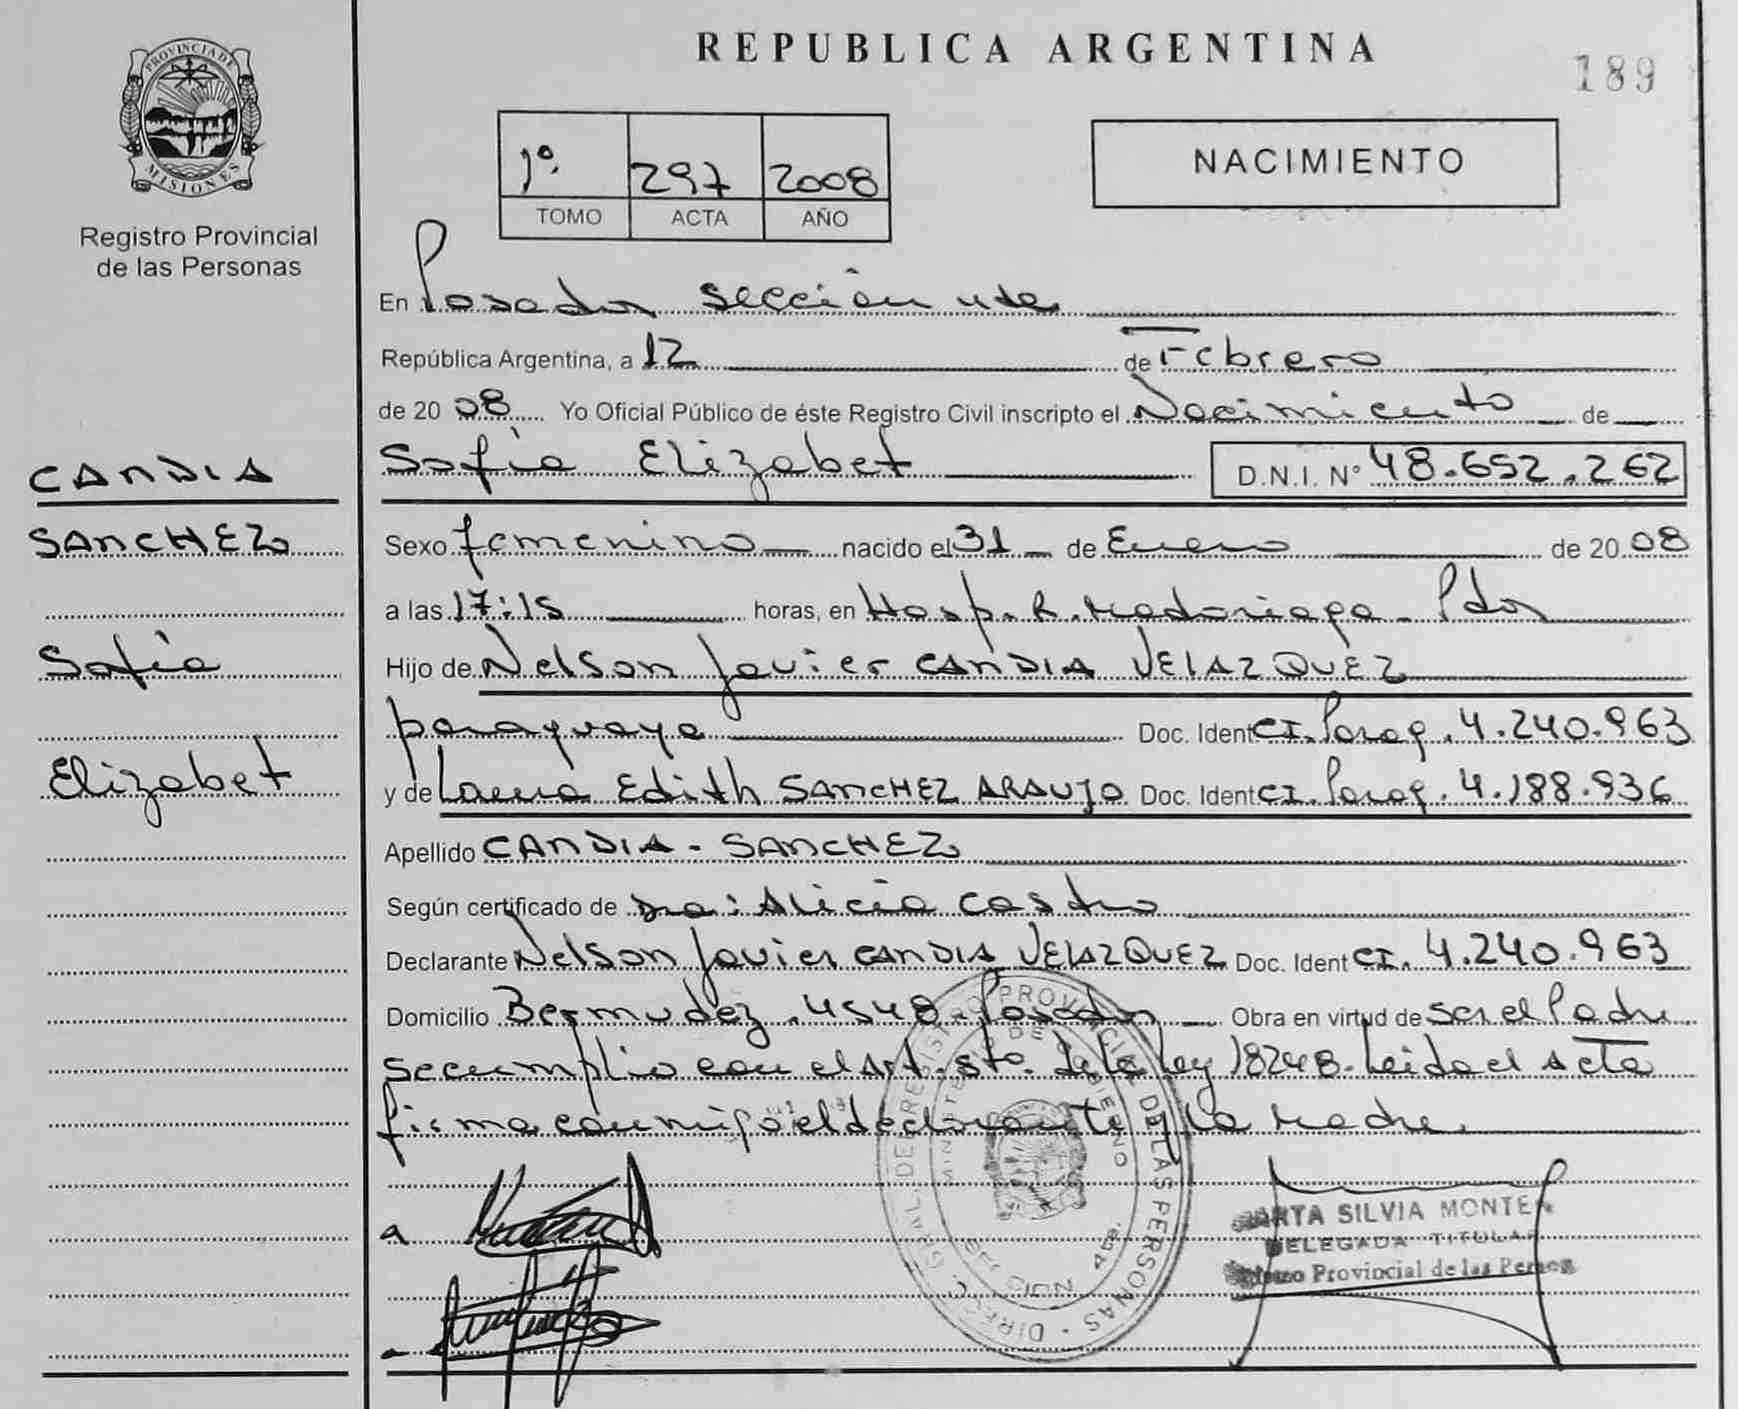 PROVINCIA DE
MISIONES
Registro Provincial
de las Personas
CANDIA
SANCHEZ
Sofía
Elizabet
REPUBLICA ARGENTINA
189
1º. 297 2008
TOMO ACTA AÑO
NACIMIENTO
En Posadas sección 4ta
República Argentina, a 12 de Febrero
de 20 08 Yo Oficial Público de éste Registro Civil inscripto el Nacimiento de
Sofía Elizabet D.N.I. Nº 48.652.262
Sexo femenino nacido el 31 de Enero de 20 08
a las 17:15 horas, en Hosp. R. Madariaga - Pdas
Hijo de Nelson Javier CANDIA VELAZQUEZ
paraguaya Doc. Ident CI. Parag. 4.240.963
y de Laura Edith SANCHEZ ARAUJO Doc. Ident CI. Parag. 4.188.936
Apellido CANDIA - SANCHEZ
Según certificado de Dra: Alicia Castro
Declarante Nelson Javier CANDIA VELAZQUEZ Doc. Ident CI. 4.240.963
Domicilio Bermudez 4548 - Posadas Obra en virtud de ser el Padre
se cumplio con el Art. 5to. de la Ley 18248. Leida el Acta
firma conmigo el declarante y la Madre
DIREC. GRAL. DEL REGISTRO PROVINCIAL DE LAS PERSONAS
MINISTERIO DE GOBIERNO
SECCION 4ta.
MARTA SILVIA MONTE
DELEGADA TITULAR
Provincial de las Person